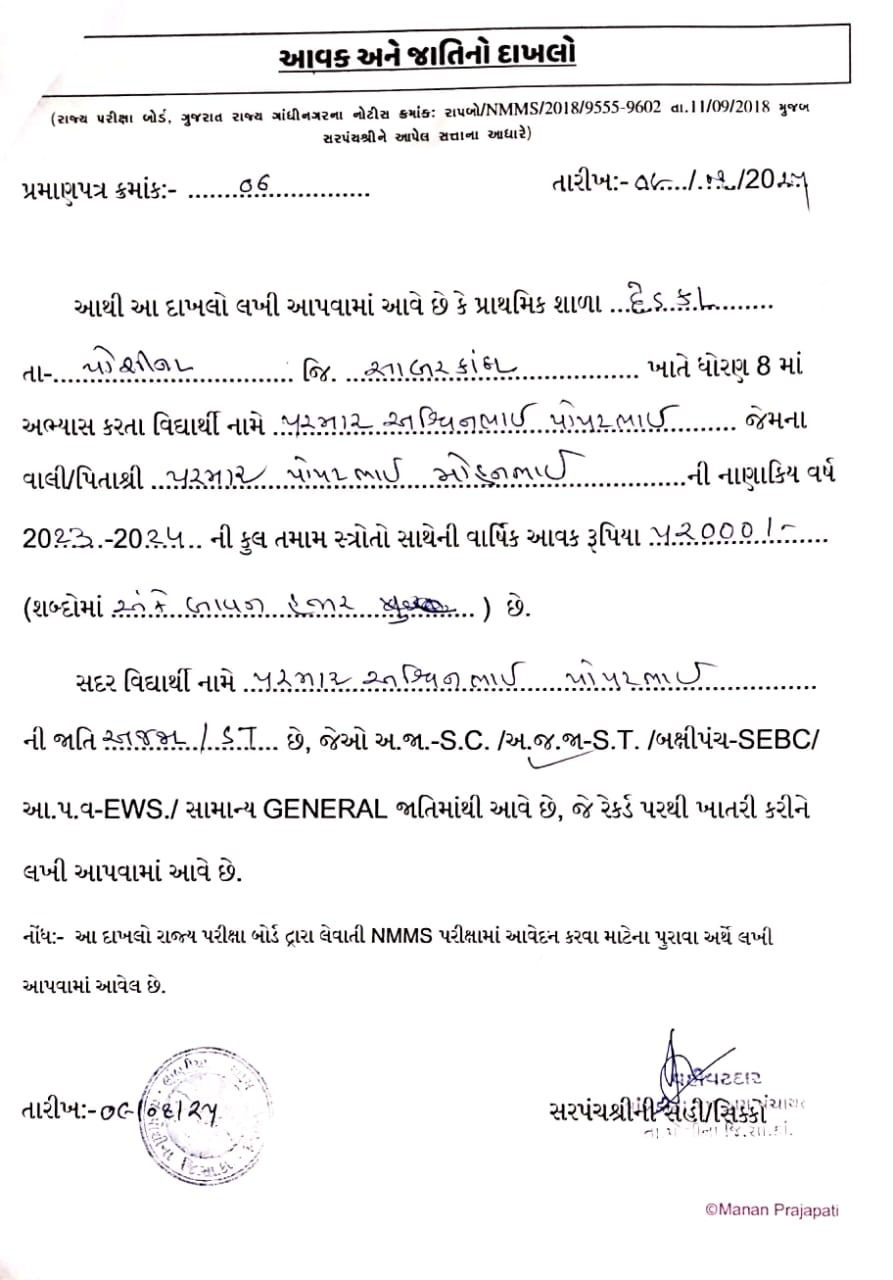 આવક અને જાતિનો દાખલો
(રાજ્ય પરીક્ષા બોર્ડ, ગુજરાત રાજ્ય ગાંધીનગરના નોટીસ ક્રમાંક: રાપબો/NMMS/2018/9555-9602 તા.11/09/2018 મુજબ
સરપંચશ્રીને આપેલ સત્તાના આધારે)
પ્રમાણપત્ર ક્રમાંક:- ........૦૬......................
તારીખ:- ..../..../20૨૫
આથી આ દાખલો લખી આપવામાં આવે છે કે પ્રાથમિક શાળા ...........
તા-....પોશીના.............. જિ. ...સાબરકાંઠા............... ખાતે ધોરણ 8 માં
અભ્યાસ કરતા વિદ્યાર્થી નામે ..પરમાર અશ્વિનભાઈ પોપટભાઈ....... જેમના
વાલી/પિતાશ્રી ...પરમાર પોપટભાઈ મોહનભાઈ...............ની નાણાકિય વર્ષ
20૨૩.-20૨૫.. ની કુલ તમામ સ્ત્રોતો સાથેની વાર્ષિક આવક રૂપિયા ૫૨૦૦૦/-.....
(શબ્દોમાં અંકે બાવન હજાર ....) છે.
સદર વિદ્યાર્થી નામે ..પરમાર અશ્વિનભાઈ પોપટભાઈ...............
ની જાતિ અજજા/ST... છે, જેઓ અ.જા.-S.C. /અ.જ.જા-S.T. /બક્ષીપંચ-SEBC/
આ.પ.વ-EWS./ સામાન્ય GENERAL જાતિમાંથી આવે છે, જે રેકર્ડ પરથી ખાતરી કરીને
લખી આપવામાં આવે છે.
નોંધ:- આ દાખલો રાજ્ય પરીક્ષા બોર્ડ દ્વારા લેવાતી NMMS પરીક્ષામાં આવેદન કરવા માટેના પુરાવા અર્થે લખી
આપવામાં આવેલ છે.
વહીવટદાર
તારીખ:-
સરપંચશ્રીની સહી/સિક્કો
©Manan Prajapati